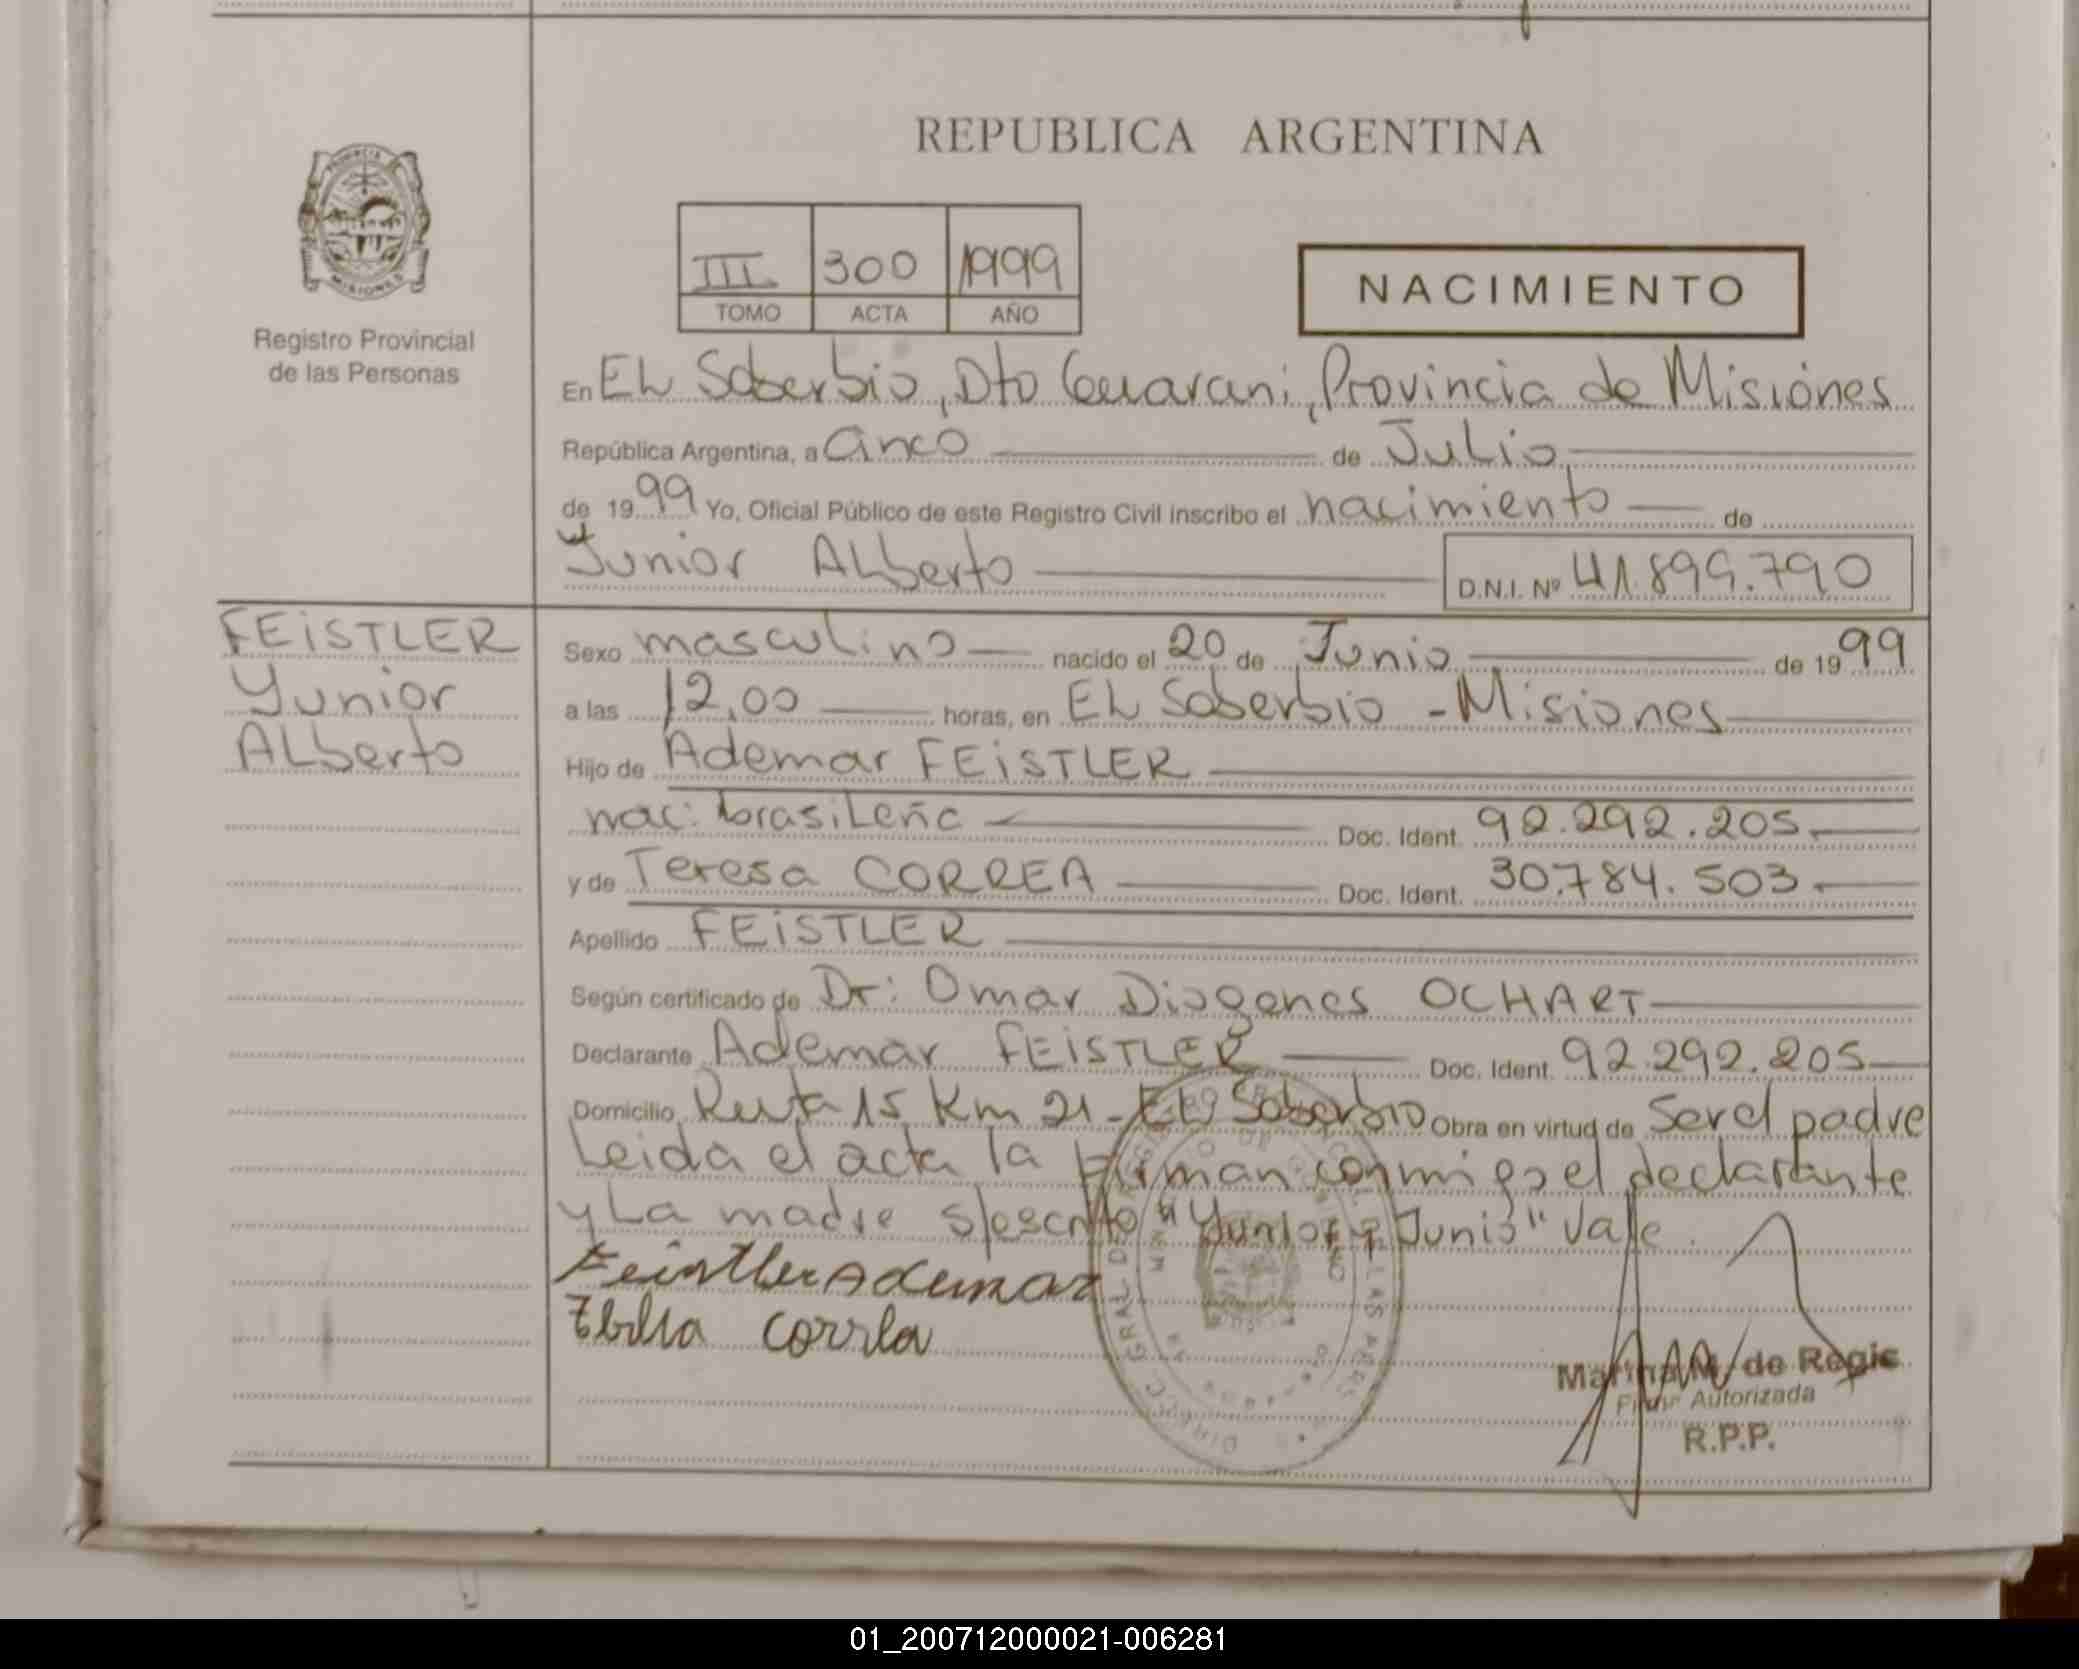 REPUBLICA ARGENTINA
PROVINCIA
MISIONES
Registro Provincial
de las Personas
III 300 1999
TOMO ACTA AÑO
NACIMIENTO
En EL Soberbio, Dto Guarani, Provincia de Misiones
República Argentina, a cinco de Julio
de 1999 Yo, Oficial Público de este Registro Civil inscribo el nacimiento de
Yunior ALberto D.N.I. Nº 41.899.790
FEiSTLER
Yunior
ALberto
Sexo masculino nacido el 20 de Junio de 1999
a las 12,00 horas, en EL Soberbio - Misiones
Hijo de Ademar FEiSTLER
nac: brasiLeña Doc. Ident. 92.292.205
y de Teresa CORREA Doc. Ident. 30.784.503
Apellido FEiSTLER
Según certificado de Dr: Omar Diogenes OCHART
Declarante Ademar FEiSTLER Doc. Ident. 92.292.205
Domicilio Ruta 15 Km 21 - EL Soberbio Obra en virtud de Ser el padre
Leida el acta la firman conmigo el declarante
y La madre s/escrito "Yunior y Junio" Vale.
Feistler Ademar
Correa
Marina M. de Regis
Firma Autorizada
R.P.P.
01_200712000021-006281